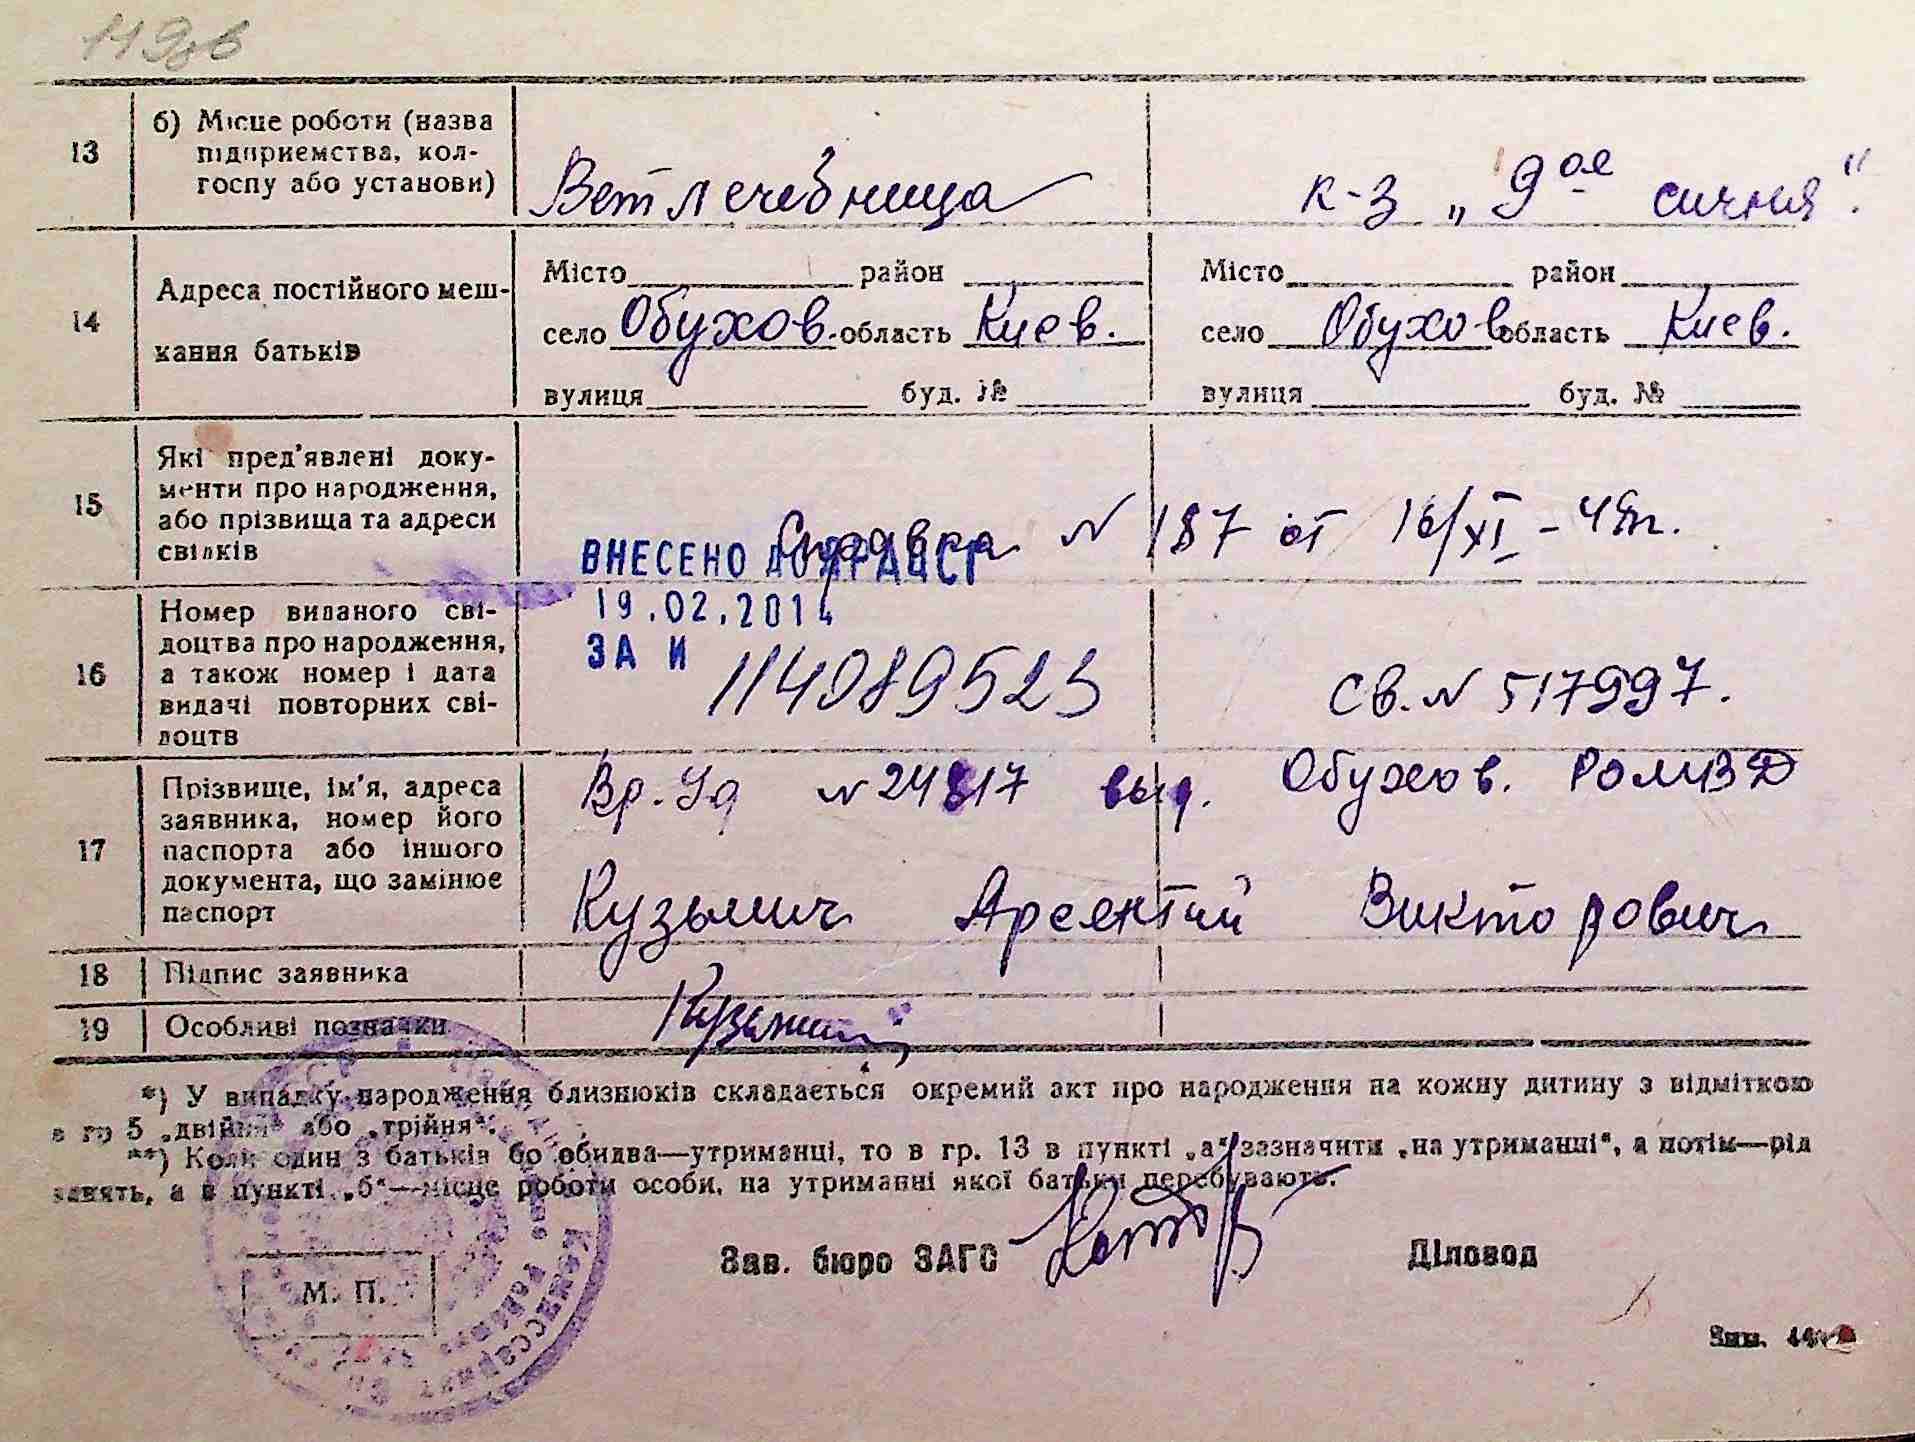 119зв
13 б) Місце роботи (назва
підприємства, кол-
госпу або установи)
Ветлечебница
к-з „9ое сичня".
14 Адреса постійного меш-
кання батьків
Місто район
село Обухов. область Киев.
вулиця буд. №
Місто район
село Обухов область Киев.
вулиця буд. №
15 Які пред'явлені доку-
менти про народження,
або прізвища та адреси
свідків
Справка N 187 от 16/XI-
ВНЕСЕНО ДО ДРАЦСГ
19.02.2014
ЗА И 114089523
16 Номер виданого сві-
доцтва про народження,
а також номер і дата
видачі повторних сві-
доцтв
Св. N 517997.
17 Прізвище, ім'я, адреса
заявника, номер його
паспорта або іншого
документа, що замінює
паспорт
Вр. Уд N выд. Обухов. РОМВД
Кузьмич Арсентий Викторович
18 Підпис заявника
19 Особливі позначки
*) У випадку народження близнюків складається окремий акт про народження на кожну дитину з відміткою
в гр 5 „двійня" або „трійня".
**) Коли один з батьків бо обидва—утриманці, то в гр. 13 в пункті „а" зазначити „на утриманні", а потім—рід
занять, а в пункті „б"—місце роботи особи, на утриманні якої батьки перебувають.
Зав. бюро ЗАГС
Діловод
М. П.
Зам.